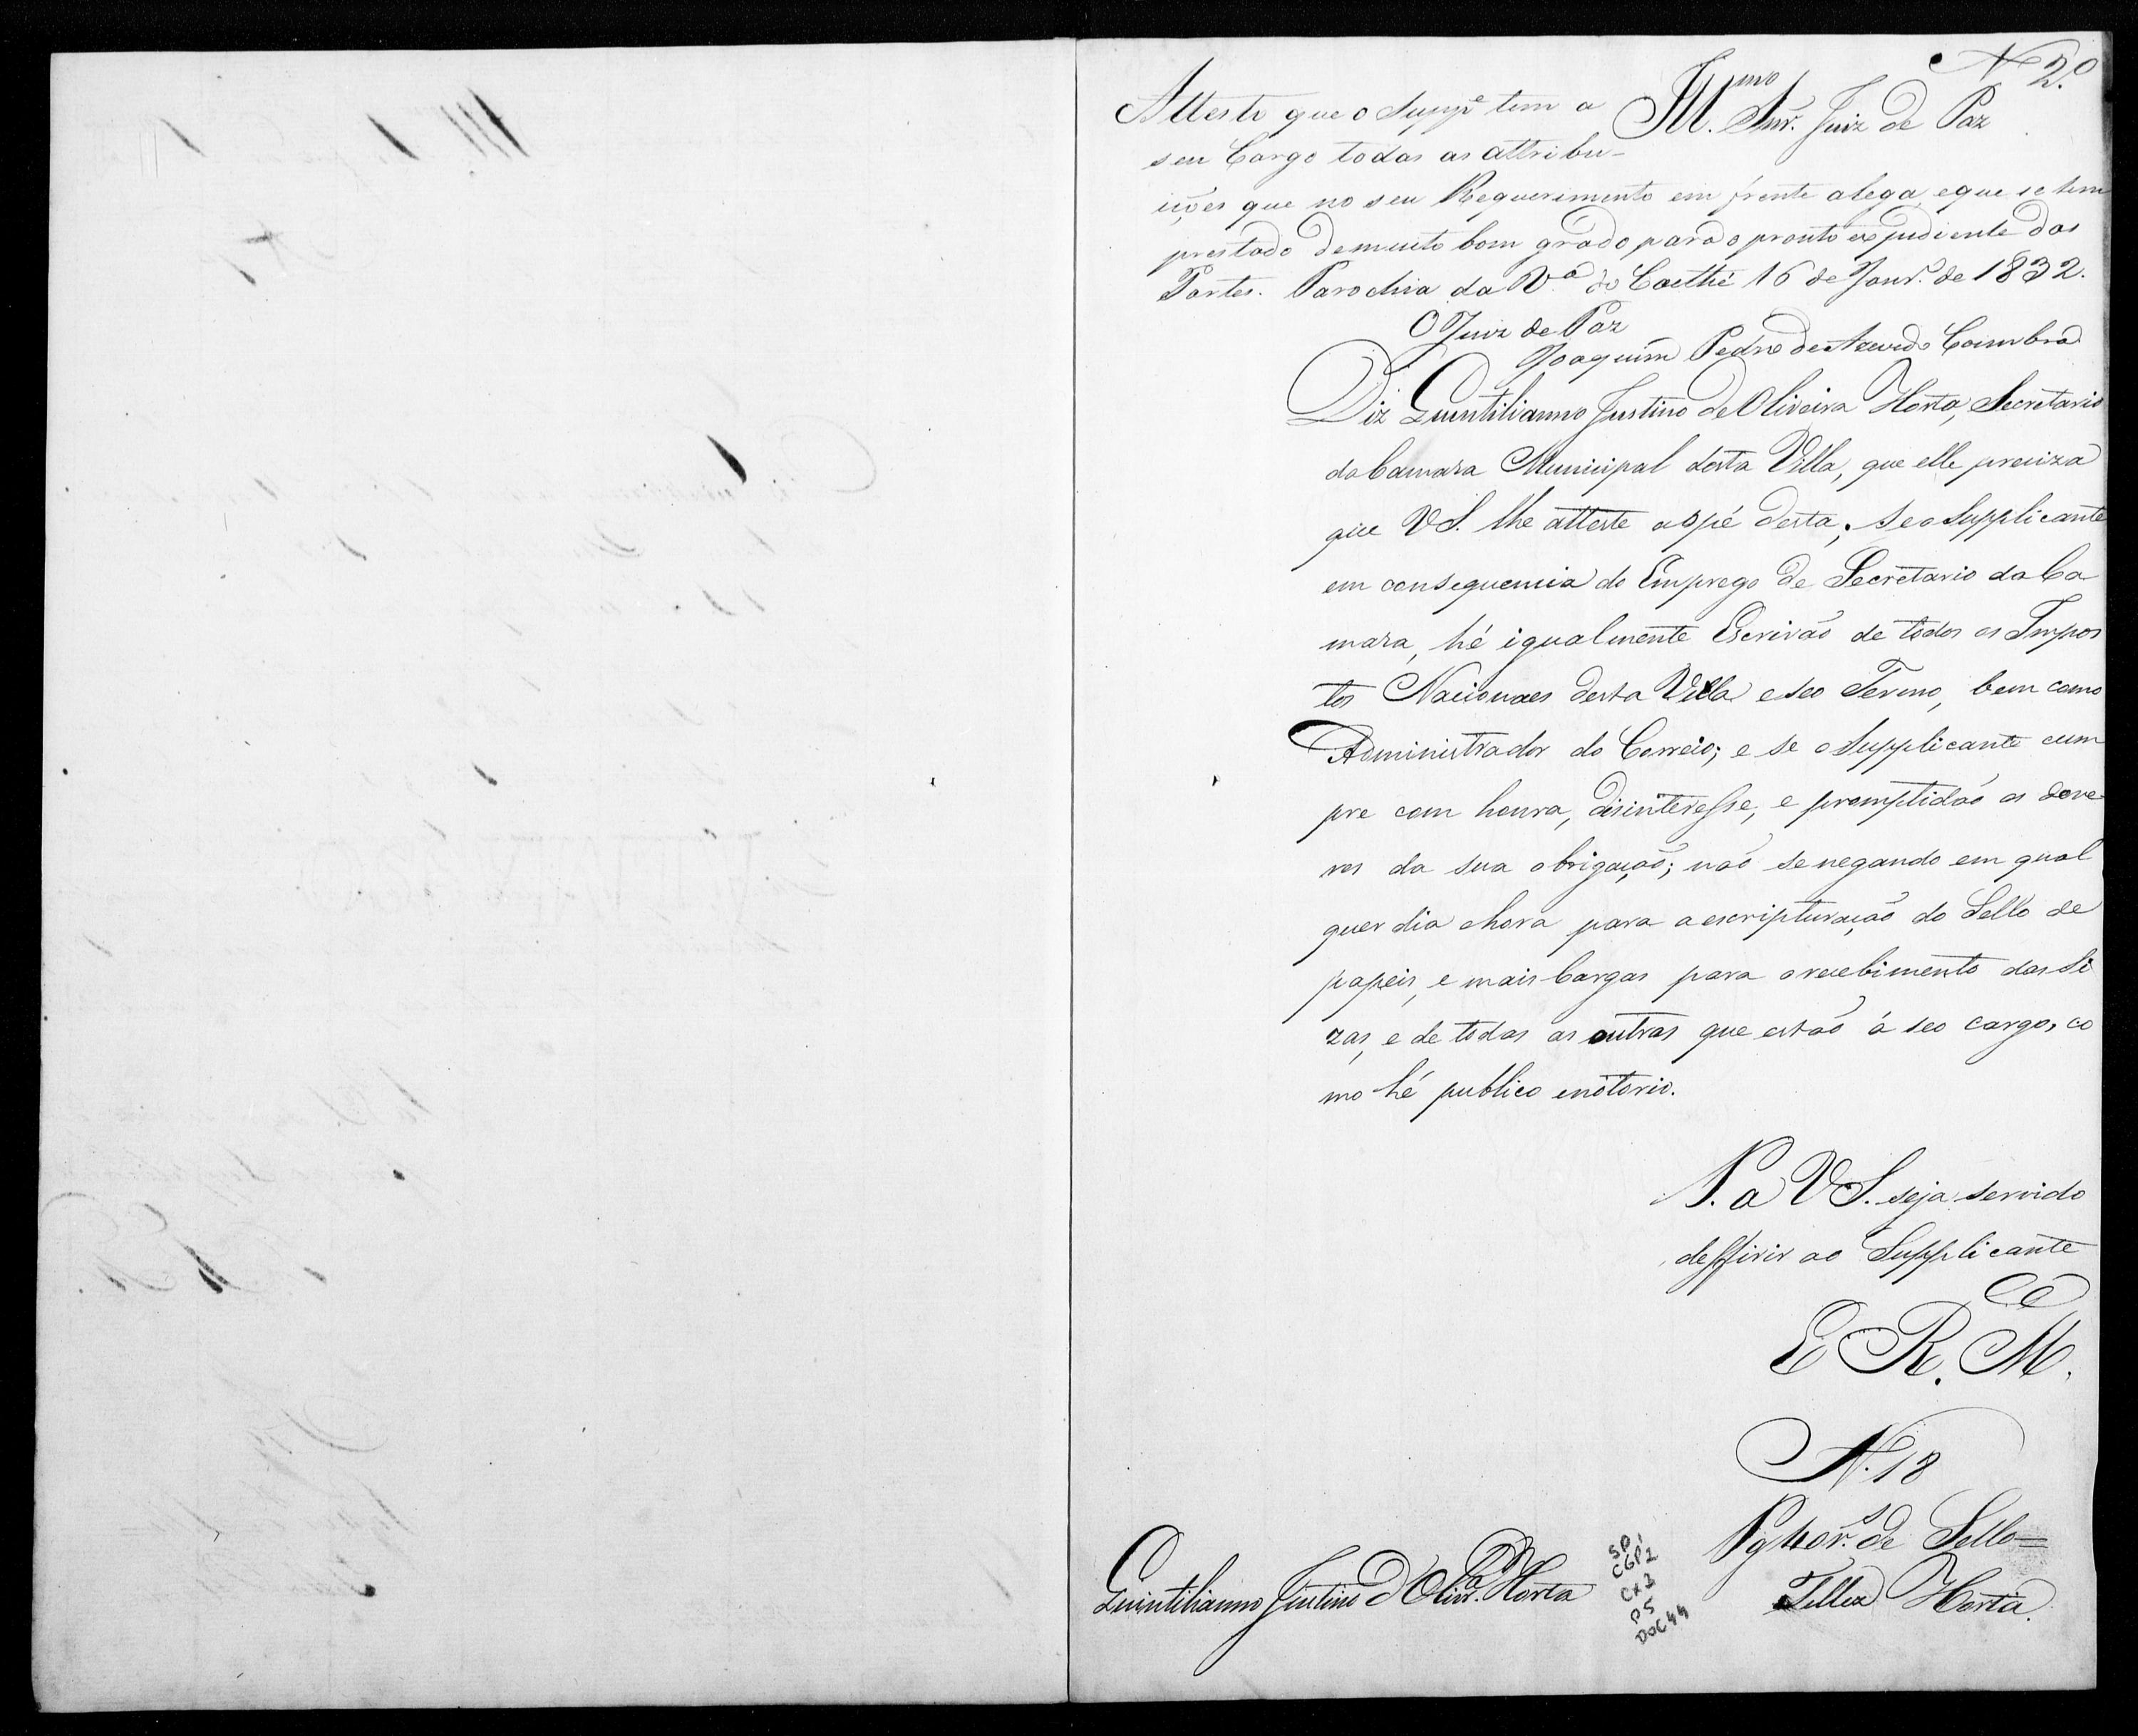 N 2.º
Ill.mo Snr. Juiz de Paz
Attesto que o Suppe tem a
seu Cargo todas as attribu-
ições que no seu Requerimento em frente alega, e que se tem
prestado de muito bom grado para o pronto expediente das
Partes. Parochia da Va do Caethé 16 de Janr.o de 1832.
O Juiz de Paz
Joaquim Pedro de Azevedo Coimbra
Diz Quintilianno Justino de Oliveira Horta, Secretario
da Camara Municipal desta Villa, que elle preciza
que VS. lhe atteste ao pé desta, se o Supplicante
em consequencia do Emprego de Secretario da Ca
mara, hé igualmente Escrivão de todos os Impos
tos Nacionaes desta Villa e seo Termo, bem como
Administrador do Correio; e se o Supplicante cum
pre com honra, disinteresse, e promptidão os deve
res da sua obrigação; não se negando em qual
quer dia e hora para a escripturação do Sello de
papeis, e mais Cargas para o recebimento das Si
zas, e de todas as outras que estão á seo cargo, co
mo hé publico e notorio.
P. a VS. seja servido
defferir ao Supplicante
E R. M.ce
N. 18
Pg 40 r.s de Sello=
Horta.
Quintilianno Justino d'Olivr.a Horta
SP
CGP1
CX2
P5
DOC44